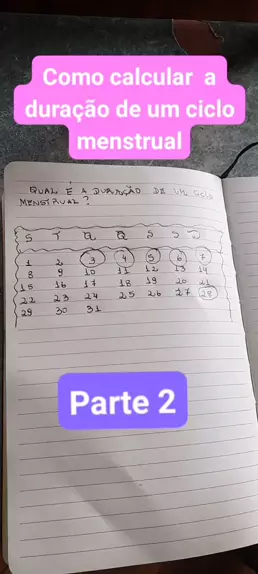 Como calcular a
duração de um ciclo
menstrual
QUAL É A DURAÇÃO DE UM CICLO
MENSTRUAL?
S T Q Q S S D
1 2 3 4 5 6 7
8 9 10 11 12 13 14
15 16 17 18 19 20 21
22 23 24 25 26 27 28
29 30 31
Parte 2